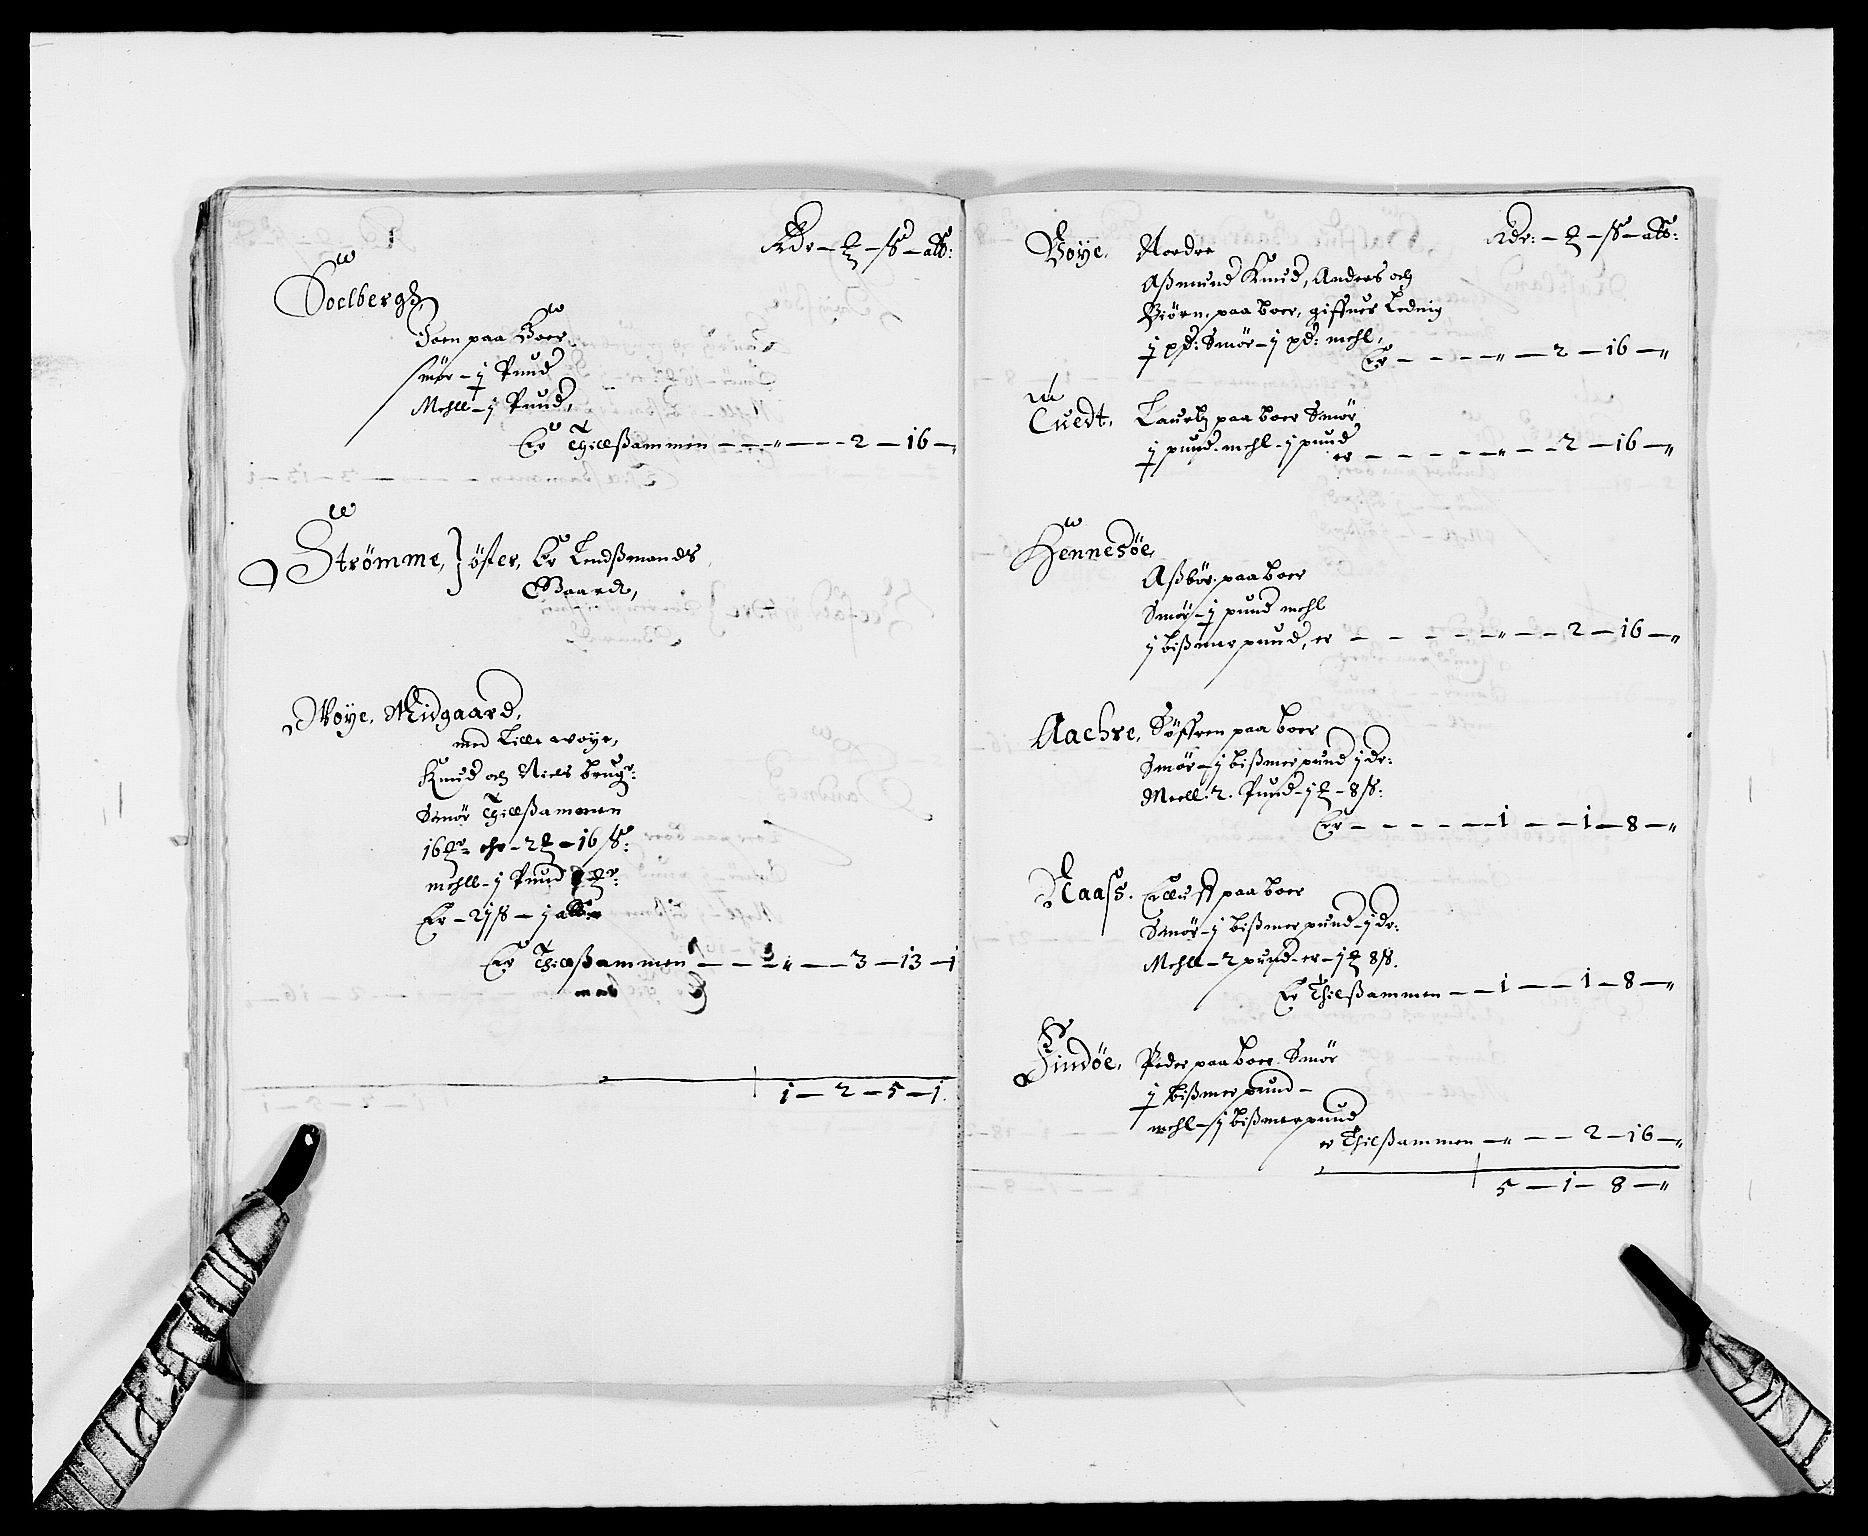 Rdr — ₰ — ß — alb:
Soelbergh,
Joen paa Boer
smör — j Pund
Mehll — j Pund,
Er Thillßammen — — „ — — 2 — 16 — „
Strömme, } öster, Er Lendßmands
Gaard,
Woye, Midgaard,
med Lille woye,
Knud och Niels brugr:
Smör Thillßammen
mehll — j Pund
Er — 2jß — j alb:
Er Thillßammen — — „ — 3 — 13 — 1
1 — 2 — 5 — 1.
Rdr: — ₰ — ß — alb:
Voye, Nordre
Aßmund Knud, Anders och
Biörn, paa boer, giffuer Leding
j pd: Smör — j pd: mehl,
Er — — — „ — 2 — 16 — „
Cuedt, Lauerß paa boer Smör
j pund. mehl — j pund
er — — — — „ — — 2 — 16 — „
Hennesöe,
Aßbör. paa boer
Smör — j pund mehl
j bißmer pund, er — — — — „ — — 2 — 16 — „
Aachre, Söffren paa boer
Smör — j bißmer pund j dr:
Meell. 2. Pund — j ₰ — 8 ß:
Er — — — — 1 — — 1 — 8 — „
Naass. Elluff paa boer
Smör — j bißmer pund — j dr:
Mehll — 2 pund — er — j ₰ 8 ß.
Er Thilßammen — — 1 — — 1 — 8 — „
Findöe, Peder paa boer. Smör
j bißmer pund —
mehl — j bißmer pund
er Thilßammen — „ — — 2 — 16 — „
5 — 1 — 8 — „